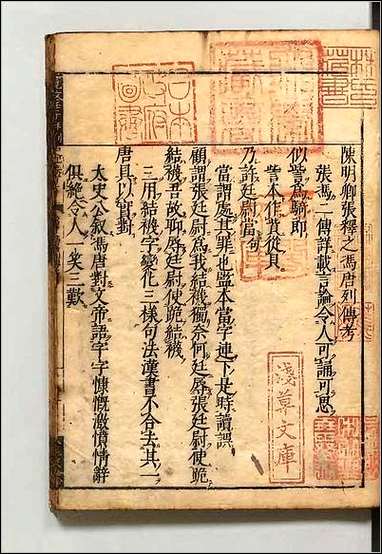 陳明卿張釋之馮唐列傳考
張馮一傳詳載言論令人可誦可思
以訾爲騎郎
訾本作貲從貝
乃詐廷尉當句
當謂處其罪也蓋本當字連下是時讀誤
顧謂張廷尉爲我結襪獨奈何廷辱張廷尉使跪
結襪吾故聊辱廷尉使跪結襪
三用結襪字變化三樣句法漢書不合去其一
唐具以實對
太史公敘馮唐對文帝語字字慷慨激憤情辭
俱絶令人一笑三歎
淺草文庫
日本政府圖書
林氏藏書